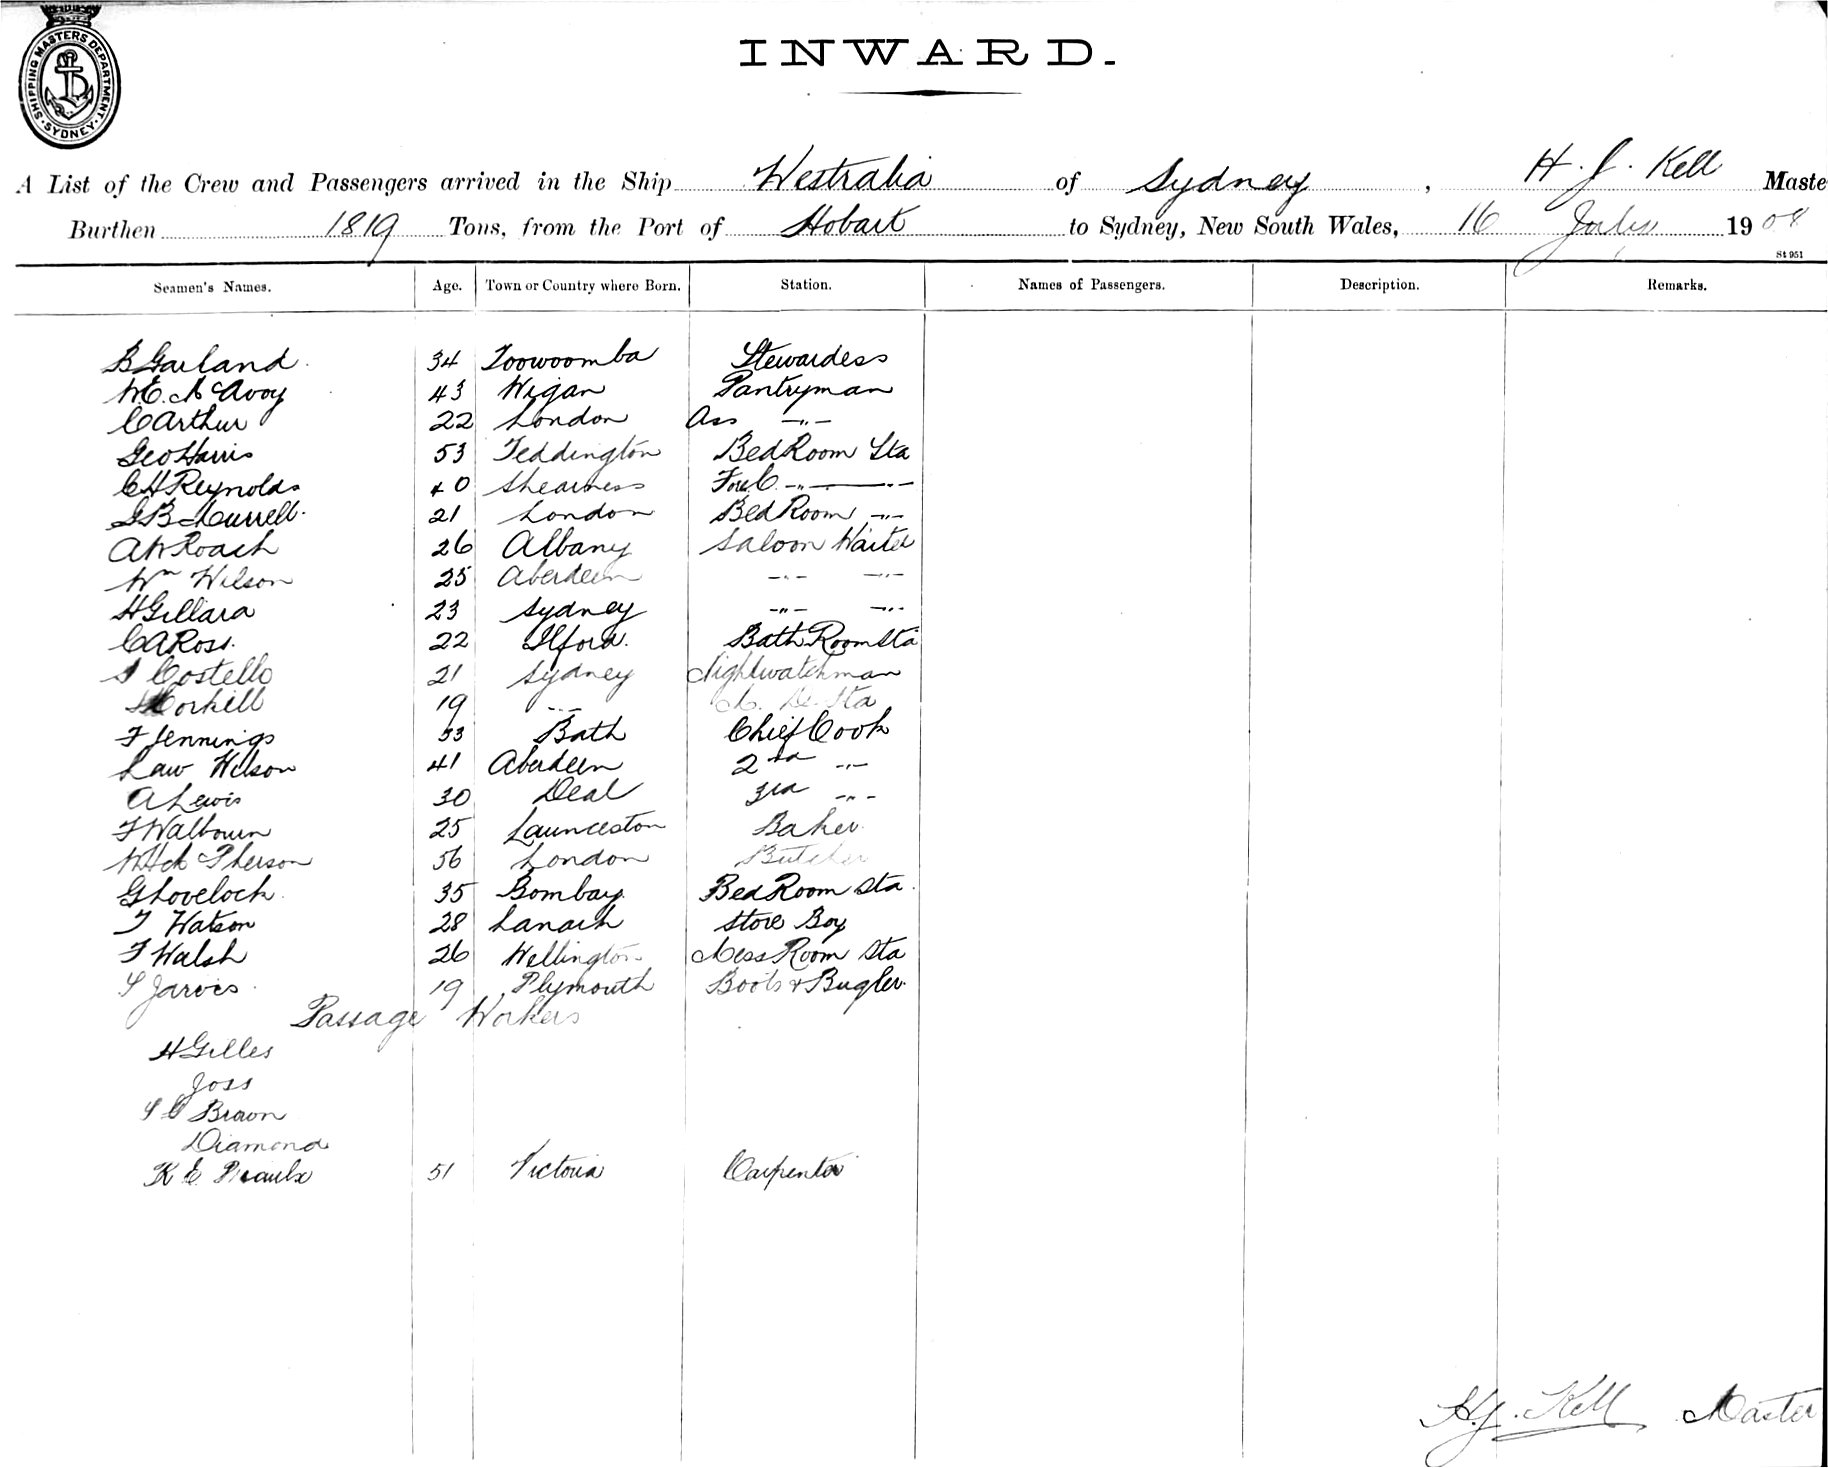 SHIPPING MASTERS DEPARTMENT
SYDNEY
INWARD.
A List of the Crew and Passengers arrived in the Ship Westralia of Sydney, H. J. Kell Maste
Burthen 1819 Tons, from the Port of Hobart to Sydney, New South Wales, 16 July 1908
St 951
Seamen's Names. Age. Town or Country where Born. Station. Names of Passengers. Description. Remarks.
B Garland 34 Toowoomba Stewardess
W.E. McAvoy 43 Wigan Pantryman
C Arthur 22 London Ass -"-
Geo Harris 53 Teddington Bed Room Sta
C H Reynolds 40 Shearness Fore C. -"- -"-
G B Murrell 21 London Bed Room -"-
A W Roach 26 Albany Saloon Waiter
Wm Wilson 25 Aberdeen -"- -"-
H Gillard 23 Sydney -"- -"-
C A Ross. 22 Ilford. Bath Room Sta
Costello 21 Sydney Nightwatchman
Corkill 19 -"- Sta
F Jennings 53 Bath Chief Cook
Law Wilson 41 Aberdeen 2nd -"-
A Lewis 30 Deal 3rd -"-
F Walbourn 25 Launceston Baker
W McPherson 56 London Butcher
G Lovelock 35 Bombay Bed Room Sta.
T Watson 28 Lanark Store Boy
F Walsh 26 Wellington Mess Room Sta
S Jarvis 19 Plymouth Boots & Bugler
Passage Workers
H Gilles
Joss
Brown
Diamond
K E 51 Victoria Carpenter
H.J. Kell Master